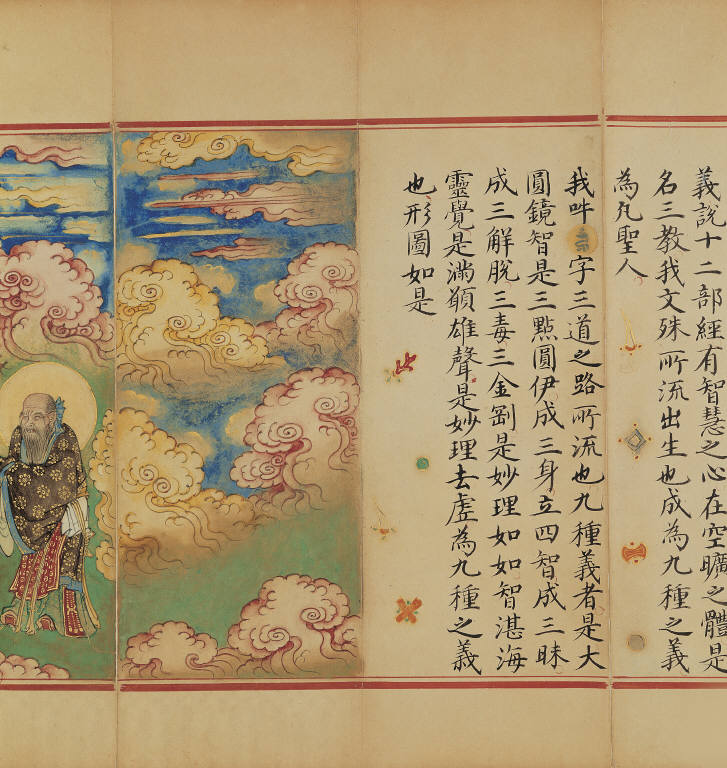 義說十二部經有智慧之心在空曠之體是
名三教我文殊所流出生也成為九種之義
為凡聖人
我吽字三道之路所流也九種義者是大
圓鏡智是三點圓伊成三身立四智成三昧
成三解脫三毒三金剛是妙理如如智湛海
靈覺是滿頟雄聲是妙理去虛為九種之義
也形圖如是